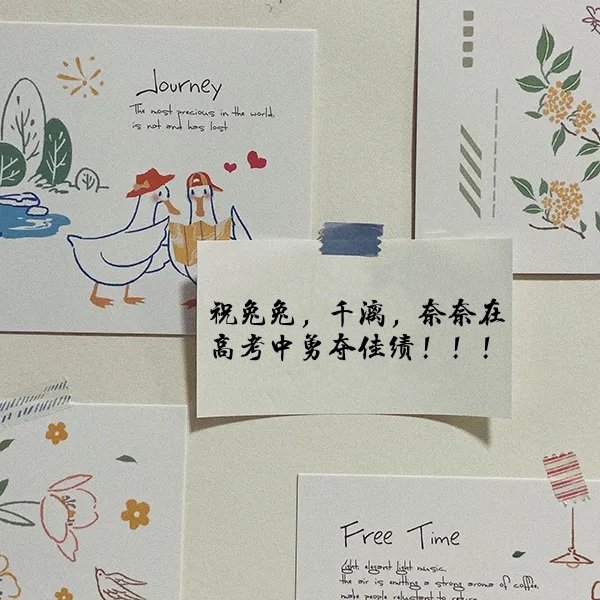 Journey
The most precious in the world
is not and has lost
祝兔兔，千漓，奈奈在
高考中勇夺佳绩！！！
Free Time
Light, elegant light music.
the air is emitting a strong aroma of coffee.
make people reluctant to retire